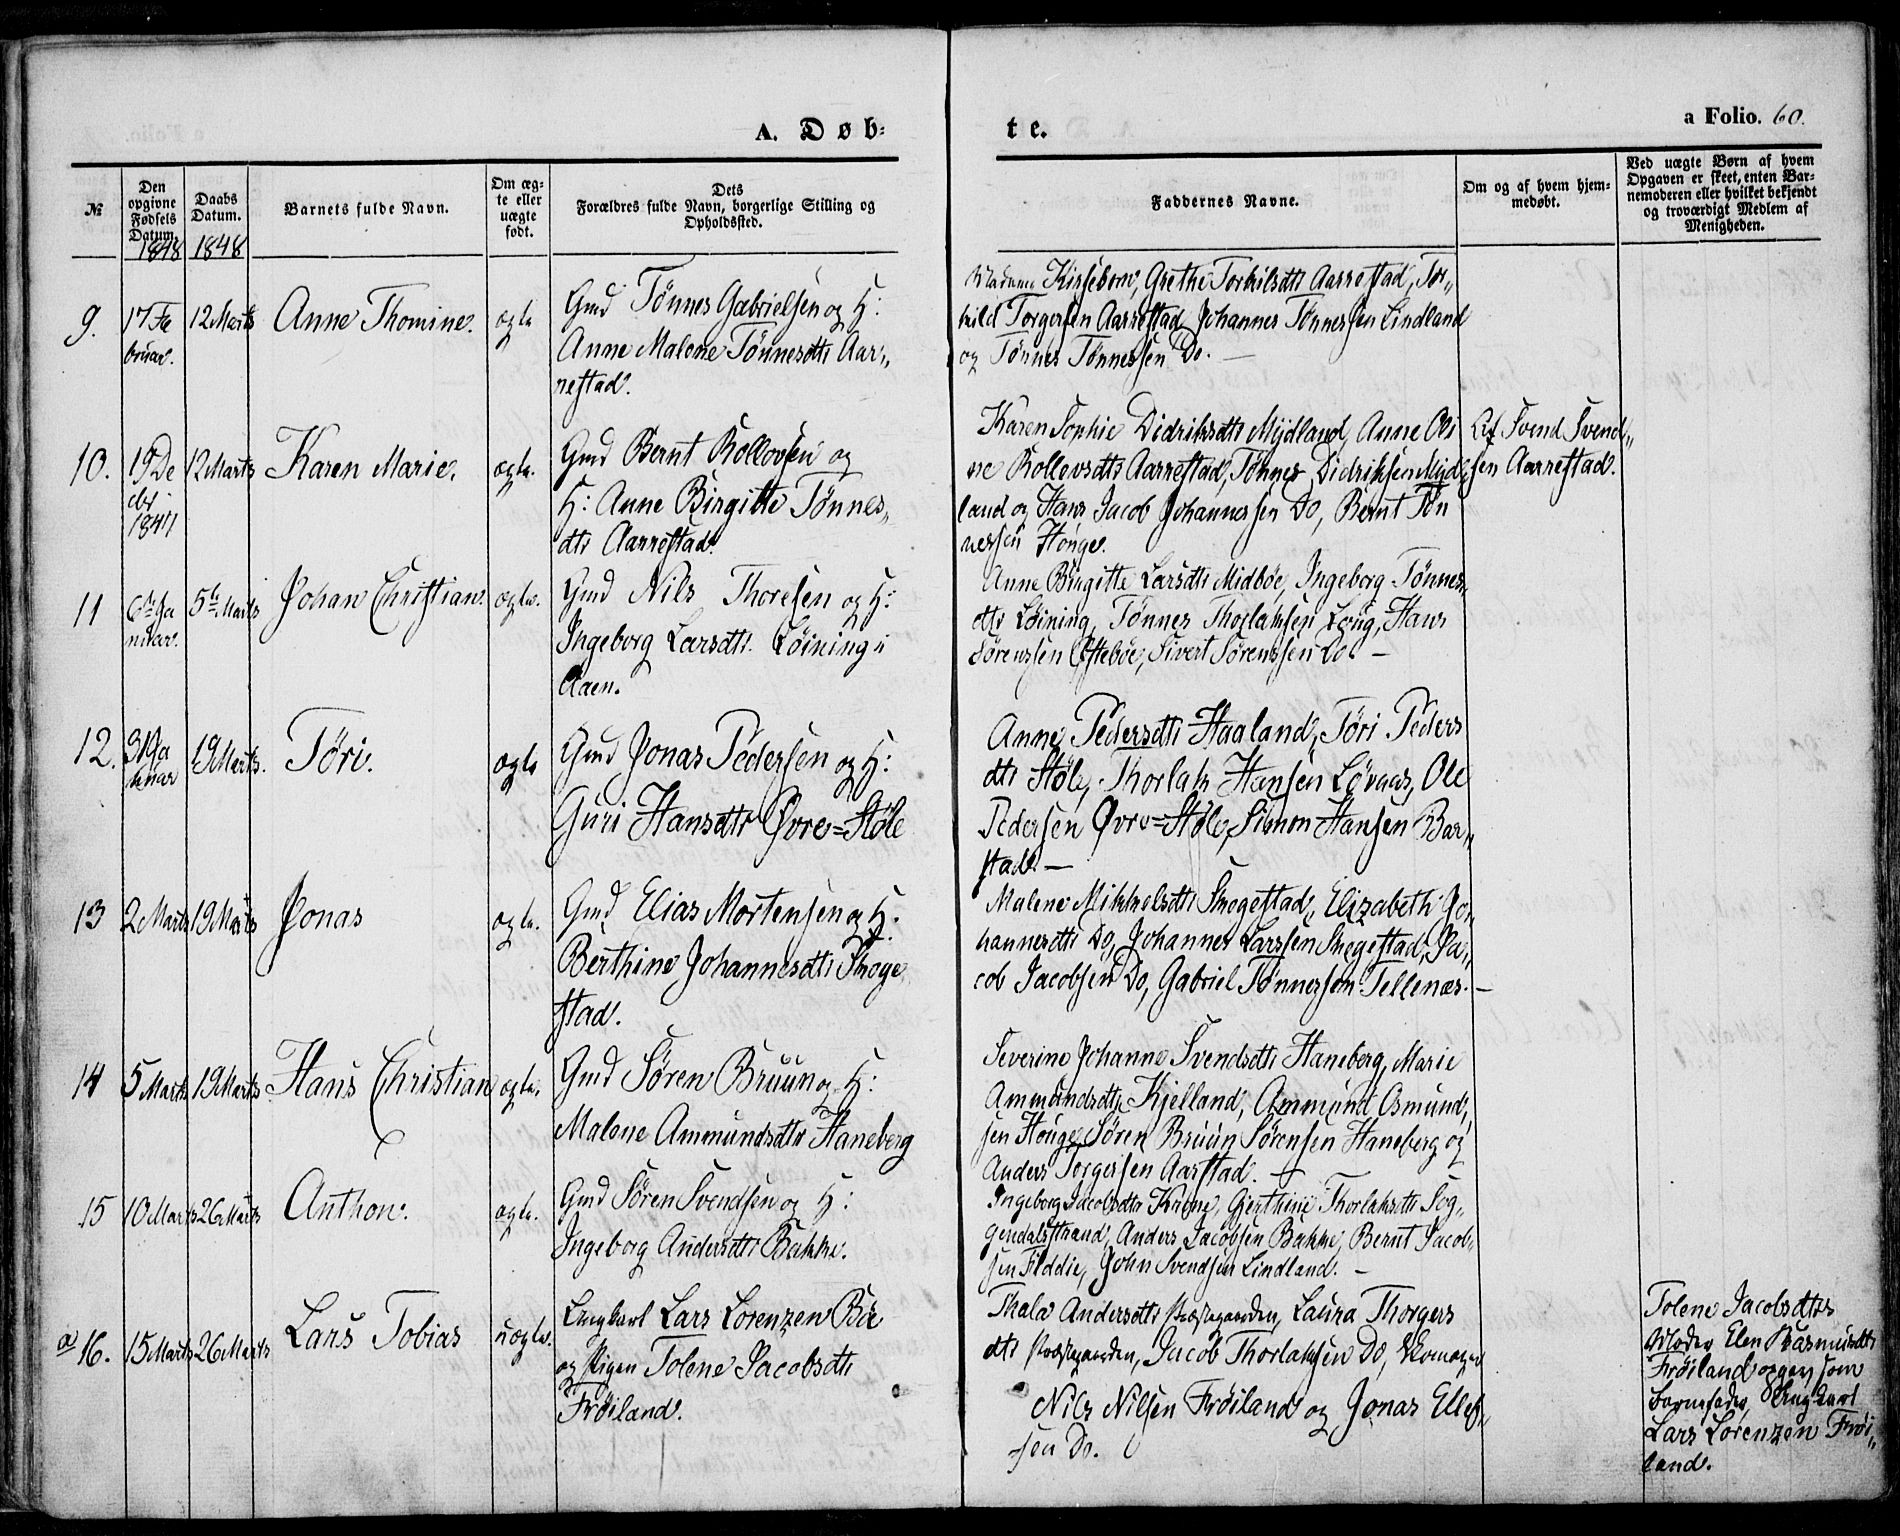 A. Døb-
te.
a Folio. 60.
№
Den opgivne Fødsels Datum.
1848
Daabs Datum.
1848
Barnets fulde Navn.
Om ægte eller uægte født.
Dets Forældres fulde Navn, borgerlige Stilling og Opholdssted.
Faddernes Navne.
Om og af hvem hjemmedøbt.
Ved uægte Børn af hvem Opgaven er skeet, enten Barnemoderen eller hvilket bekjendt og troværdigt Medlem af Menigheden.
9. 17 Fe
bruar.
12 Marts
Anne Thomine.
ægte
Gmd Tønnes Gabrielsen og H:
Anne Malene Tønnesdtr Aar„
restad.
Madame Kirsebom, Grethe Torkilsdtr Aarrestad, Tor„
kild Torgersen Aarrestad, Johannes Tønnessen Lindland
og Tønnes Tønnessen Do. —
10. 19 De
cbr
1847
12 Marts
Karen Marie.
ægte.
Gmd Bernt Rollovsen og
H: Anne Birgitte Tønnes„
dtr Aarrestad.
Karen Sophie Didriksdtr Mydland, Anne Oli
ne Rollevsdtr Aarrestad, Tønnes Didriksen Myd„
land og Hans Jacob Johannessen Do, Bernt Tøn
nessen Houge.
Af Svend Svend„
sen Aarrestad.
11 6te Ja
nuar.
5te Marts
Johan Christian
ægte.
Gmd Nils Thoresen og H:
Ingeborg Larsdtr. Løining i
Aaen.
Anne Birgitte Larsdtr Midbøe, Ingeborg Tønnes„
dtr Løining, Tønnes Thorlaksen Løvig, Hans
Sørenssen Eftebøe, Sivert Sørenssen Do —
12. 31 Ja
nuar
19 Marts.
Tøri.
ægte
Gmd Jonas Pedersen og H:
Guri Hansdtr Øvre=Støle
Anne Pedersdtr Haaland, Tøri Peders
dtr Støle, Thorlak Hansen Løvaas, Ole
Pedersen Øvre=Støle, Simon Hansen Bar„
stad. —
13 2 Marts 19 Marts
Jonas
ægte.
Gmd Elias Mortensen og H.
Berthine Johannesdtr Skoge
stad.
Malene Mikkelsdtr Skogestad, Elizabeth Jo„
hannesdtr Do, Johannes Larssen Skogestad, Ja„
cob Jacobsen Do, Gabriel Tønnessen Tellenæs. —
14 5 Marts 19 Marts
Hans Christian
ægte.
Gmd Søren Bruun og H:
Malene Ammundsdtr Haneberg
Severine Johanne Svendsdtr Haneberg, Marie
Ammundsdtr Kjelland, Ammund Osmund„
sen Houge, Søren Bruun Sørensen Haneberg og
Anders Torgersen Aarstad. —
15 10 Marts 26 Marts
Anthon.
ægte.
Gmd Søren Svendsen og H:
Ingeborg Andersdtr Bakke.
Ingeborg Jacobsdtr Krune, Gjerthine Thorlaksdtr Sog„
gendalsstrand, Anders Jacobsen Bakke, Bernt Jacob„
sen Fiddie, John Svendsen Lindland. —
a 16. 15 Marts 26 Marts
Lars Tobias
uægte.
Ungkarl Lars Lorenzen Bøe
og Pigen Tolene Jacobsdtr
Frøiland.
Thala Andersdtr Præstegaarden, Laura Thorgers
dtr Præstegaarden, Jacob Thorlaksen Do, Skomager
Nils Nilsen Frøiland og Jonas Ellef„
sen Do.
Tolene Jacobsdtrs
Moder Elen Rasmusdtr
Frøiland opgav som
Barnefader Ungkarl
Lars Lorenzen Frøi„
land.